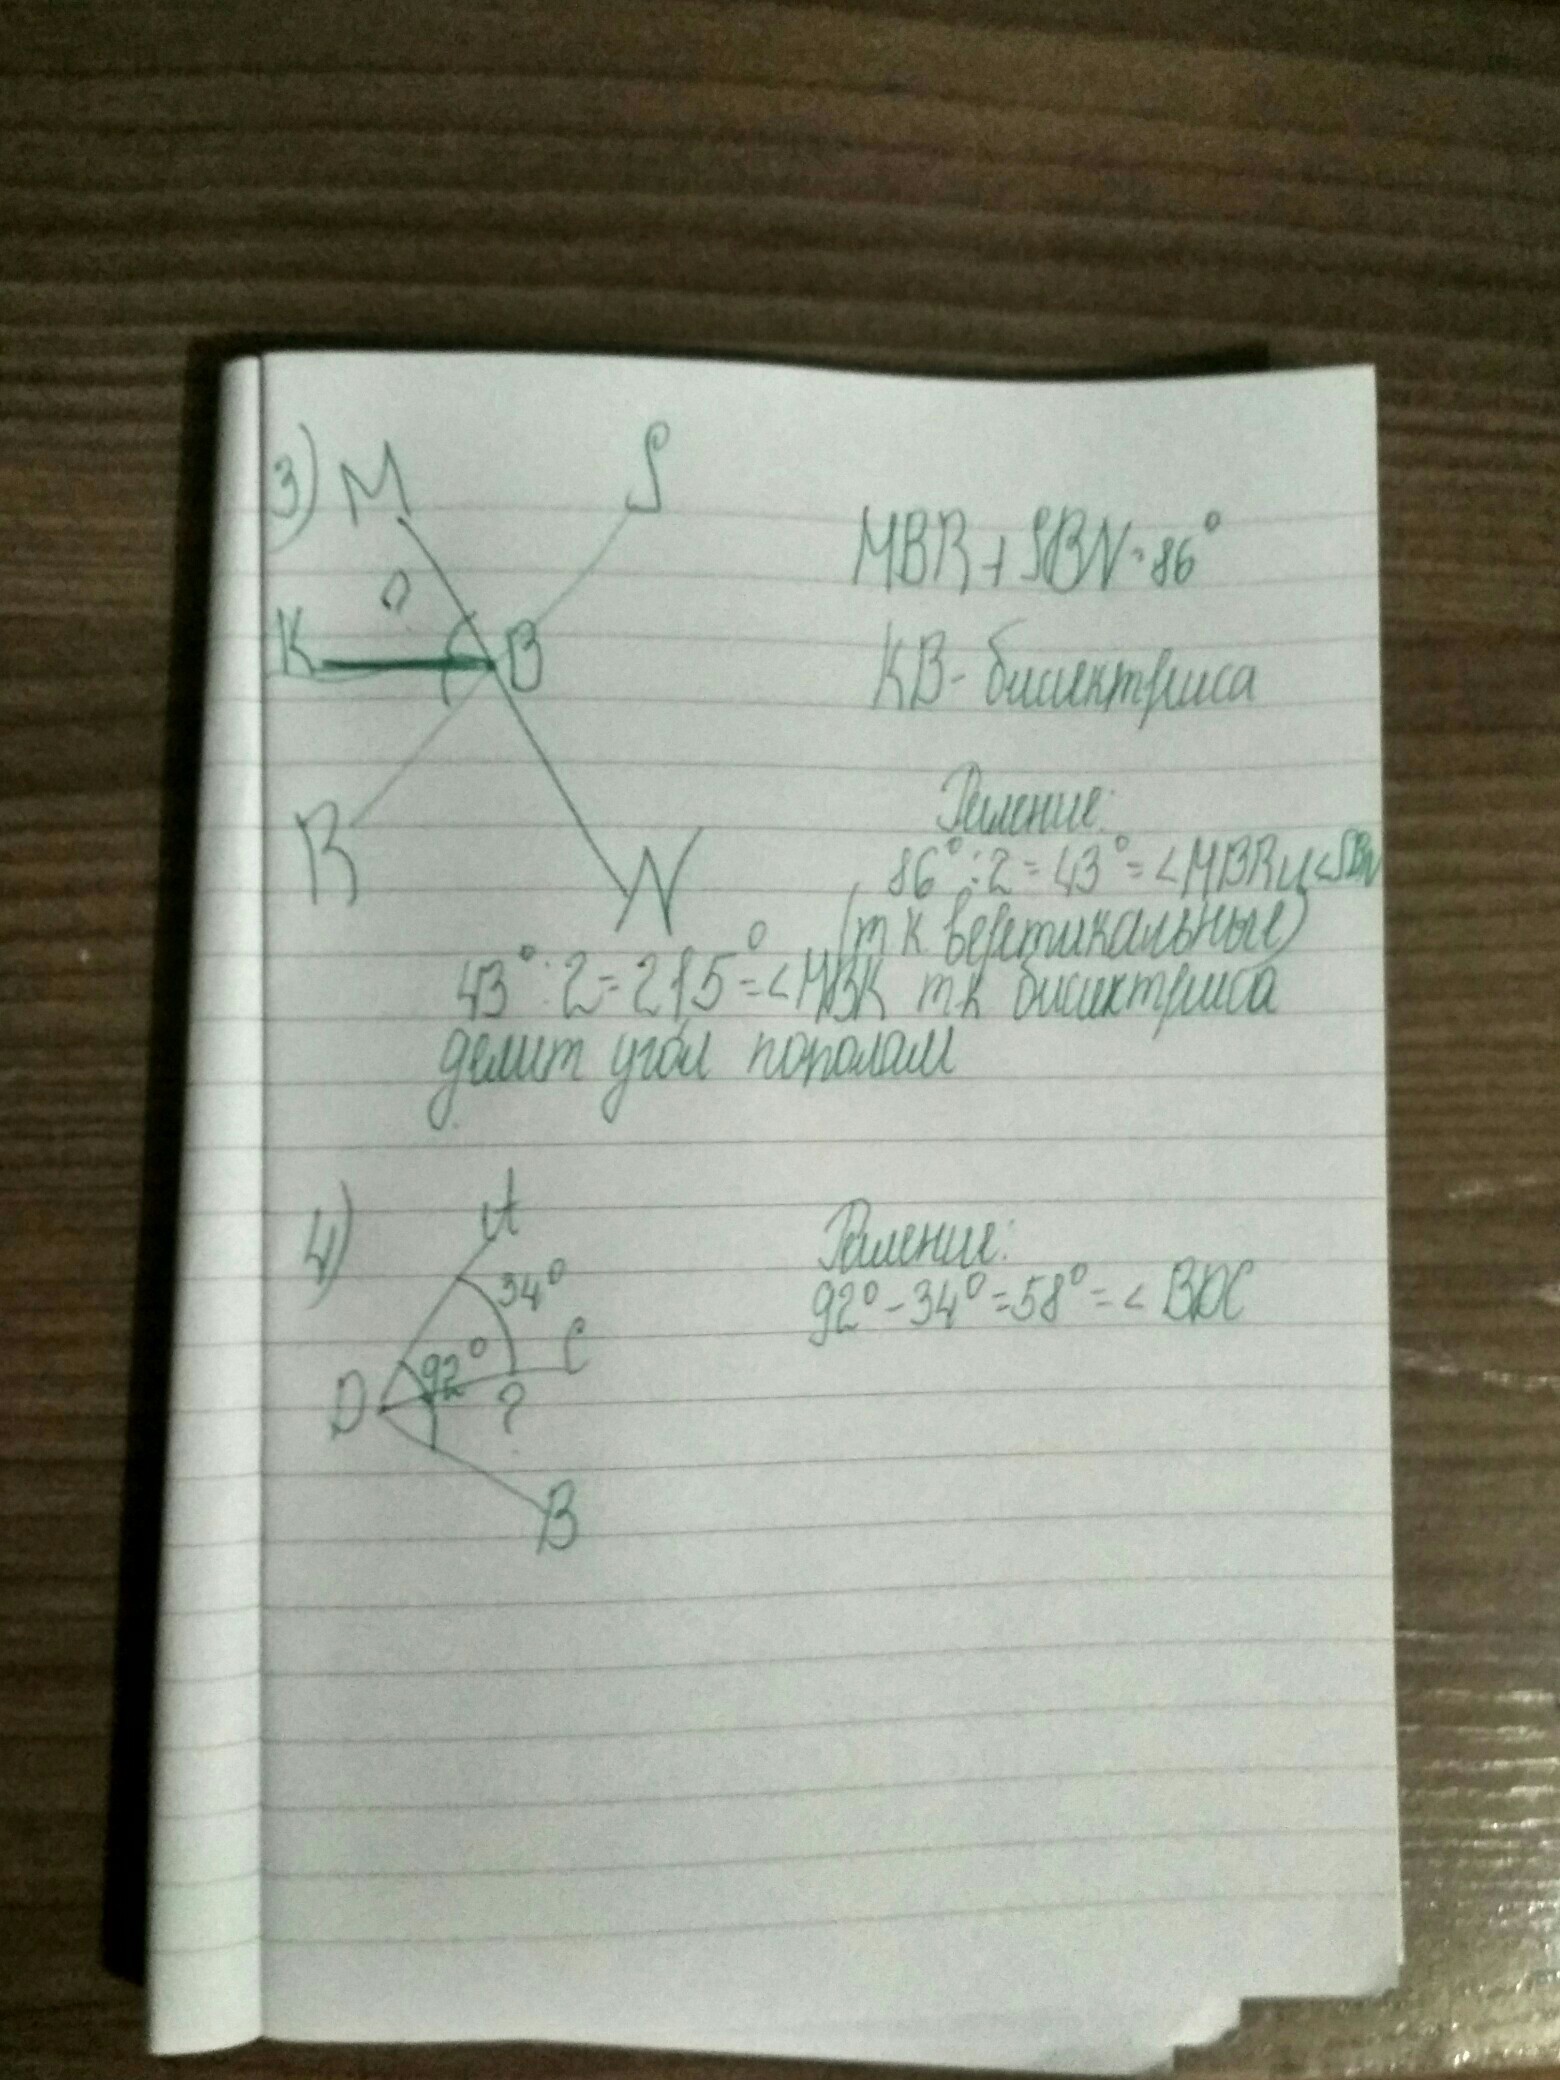 3) M S
K B
R N
?
MBR + SBN = 86°
KB - бисиктриса
Решение:
86° : 2 = 43° = ∠MBR и ∠SBN
(т к вертикальные)
43° : 2 = 21,5° = ∠MBK т к бисиктриса
делит угол пополам
4) A
34°
92° C
D ?
B
Решение:
92° - 34° = 58° = ∠ BDC